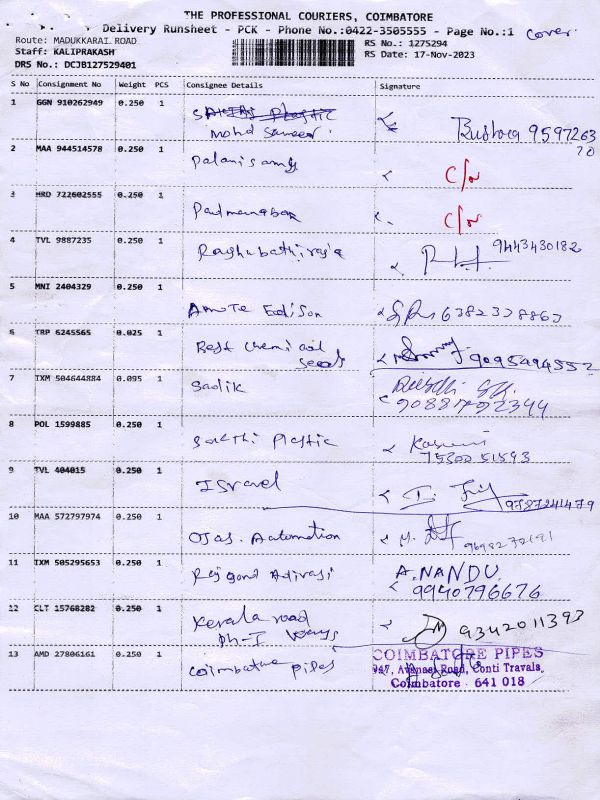 THE PROFESSIONAL COURIERS, COIMBATORE
Delivery Runsheet - PCK - Phone No.:0422-3505555 - Page No.:1 cover.
Route: MADUKKARAI ROAD
Staff: KALIPRAKASH
DRS No.: DCJB127529401
RS No.: 1275294
RS Date: 17-Nov-2023
S No Consignment No Weight PCS Consignee Details Signature
1 GGN 910262949 0.250 1 Mohd Sameer. 9597263
20
2 MAA 944514578 0.250 1 Palanisamy C/r
3 HRD 722602555 0.250 1 Padmanaban C/r
4 TVL 9887235 0.250 1 Raghubathiraja 9443430182
5 MNI 2404329 0.250 1 Edison 6382338863
6 TRP 6245565 0.025 1 Best chemical 9095494552
7 TXM 504644884 0.095 1 Sadik
9088792344
8 POL 1599885 0.250 1 Sakthi Plastic
75300 51593
9 TVL 404015 0.250 1 Israel 9787241479
10 MAA 572797974 0.250 1 Ojas. Automation
11 TXM 505295653 0.250 1 A. NANDU.
9940796676
12 CLT 15768282 0.250 1 Kerala road 9342011393
Ph-I
13 AMD 27806161 0.250 1 Coimbatore pipes COIMBATORE PIPES
947, Avanasi Road, Conti Travals,
Coimbatore - 641 018